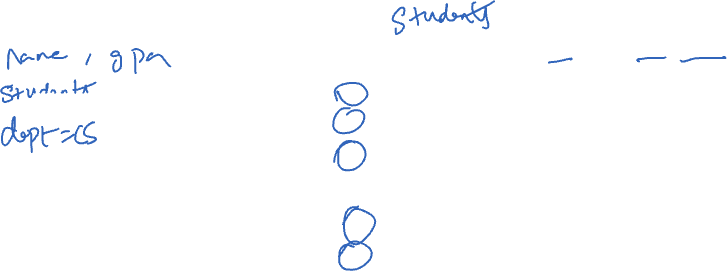 Students
name, gpa
Students
dept=CS